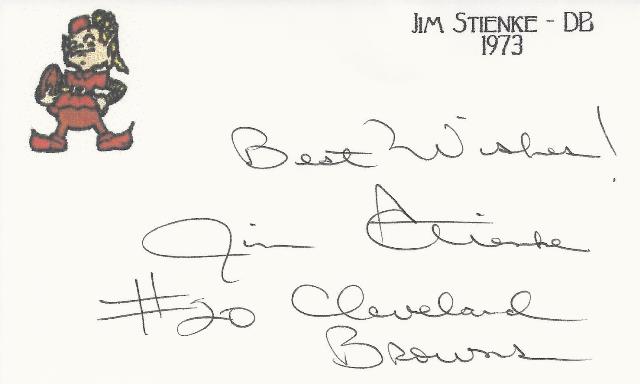 JIM STIENKE - DB
1973
Best Wishes!
Jim Stienke
#20 Cleveland
Browns